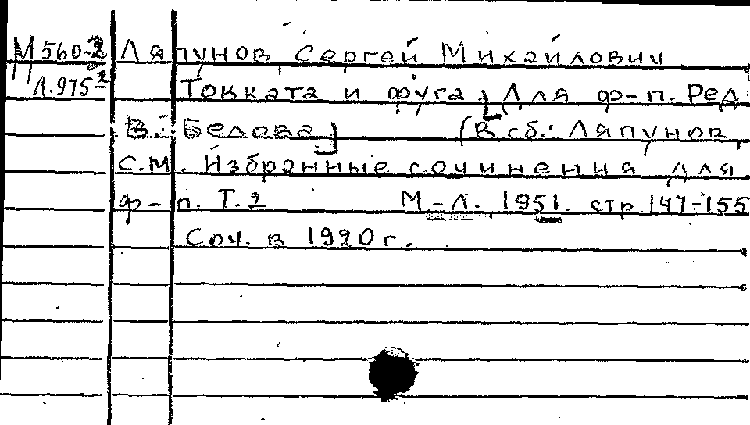 М560-2 Ляпунов Сергей Михайлович
Л.975-2 Токката и фуга, [Для ф-п. Ред.
В. Белова] (В сб.: Ляпунов,
С.М. Избранные сочинения для
ф-п. Т.2 М-Л. 1951. стр 147-155
Соч. в 1920 г.